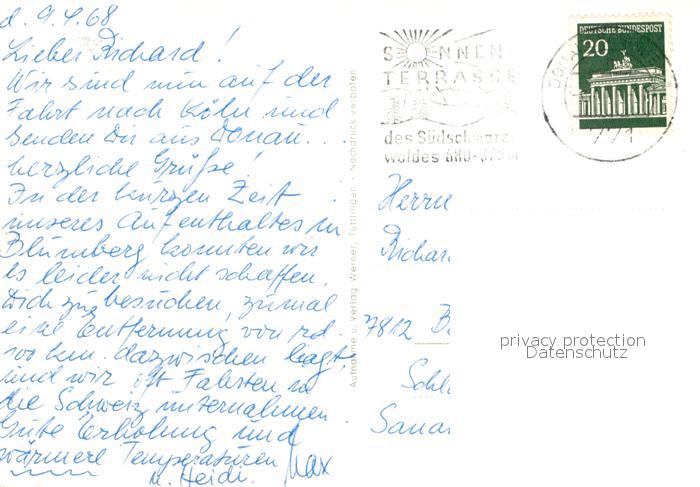 d. 9.4.68
Lieber Richard!
Wir sind nun auf der
Fahrt nach Köln und
senden Dir aus Donau...
herzliche Grüße!
In der kurzen Zeit
unseres Aufenthaltes in
Blumberg konnten wir
es leider nicht schaffen,
Dich zu besuchen, zumal
eine Entfernung von rd.
100 km. dazwischen liegt,
und wir oft Fahrten in
die Schweiz unternahmen.
Gute Erholung und
wärmere Temperaturen
Max
u. Heidi.
Aufnahme u. Verlag Werner, Tuttlingen - Nachdruck verboten
SONNEN-
TERRASSE
des Südschwarz-
waldes 680-
DEUTSCHE BUNDESPOST
20
DONAU
771
Herrn
Richar
7812 B
Schl
Sana
privacy protection
Datenschutz